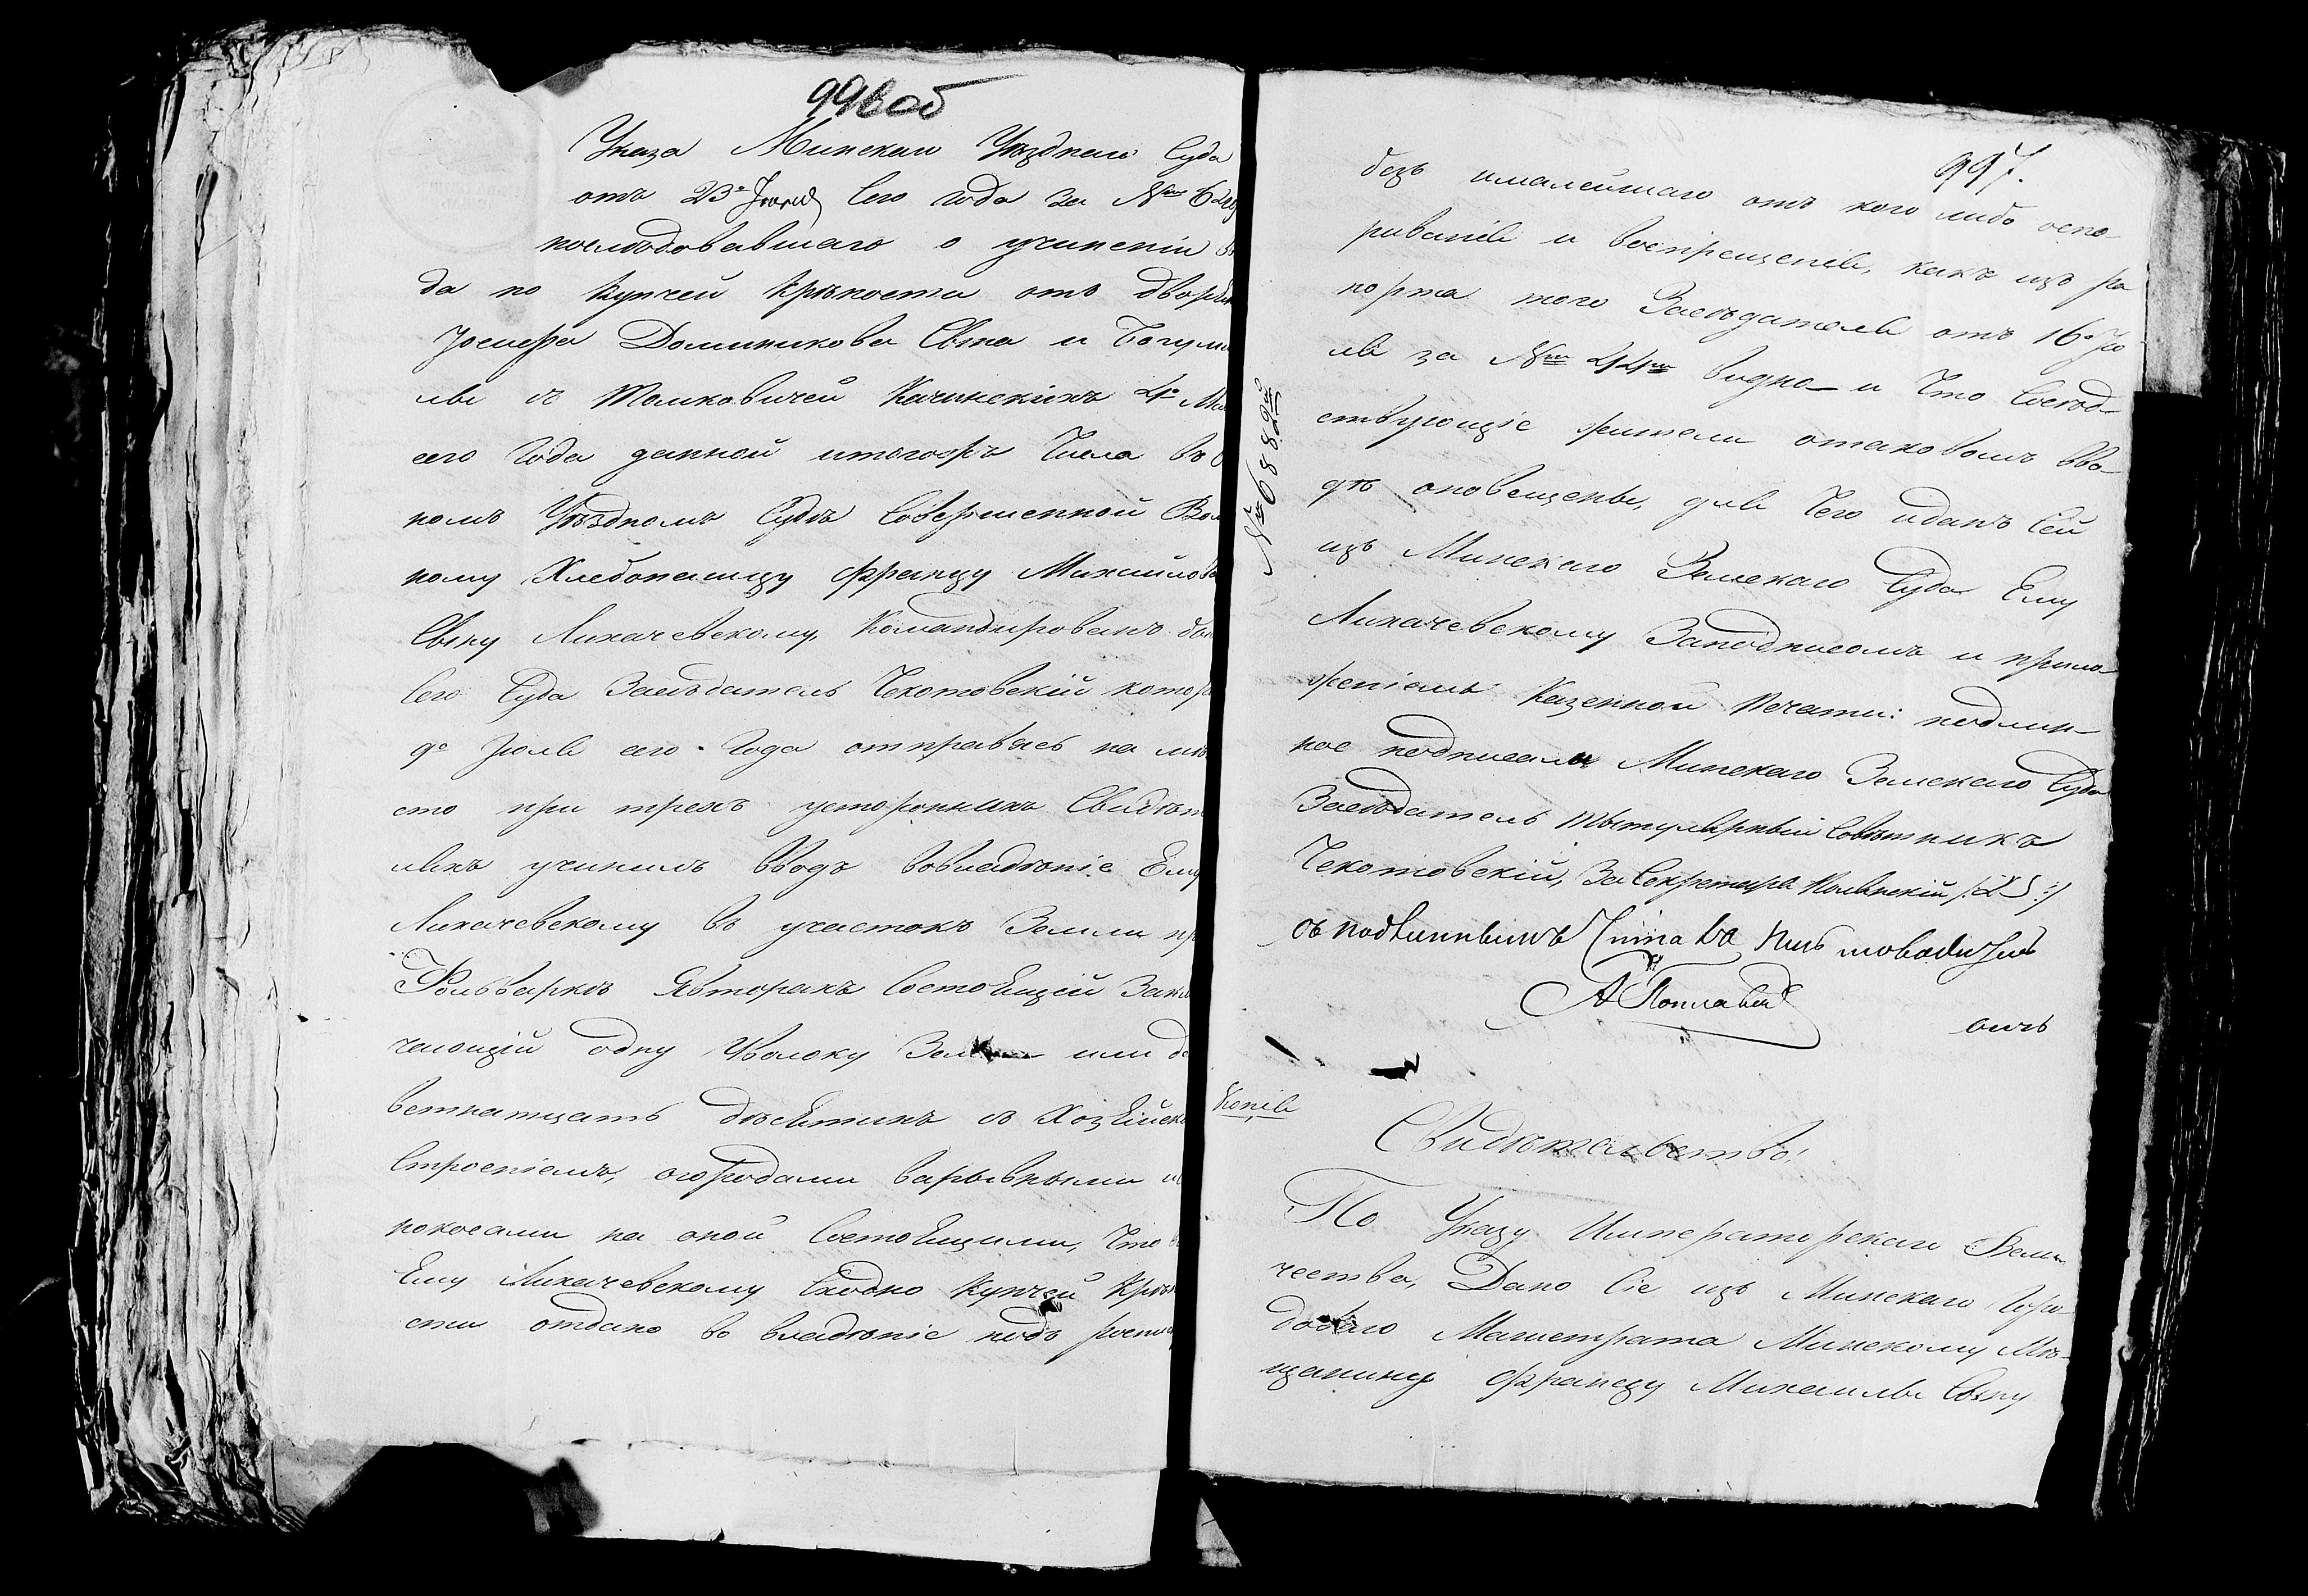 996 об
Указа Минскаго Уѣзднаго Суда
отъ 23го Іюня сего года за №
последовавшаго о учиненіи
да по Купчей Крѣпости отъ Дворян
Іосифа Доминикова Сына и
съ Томковичей Качинскихъ 4го
сего Года данной итогожъ Числа въ
номъ Уѣздномъ Судѣ Совершенной Вол
ному Хлебопашцу Францу Михайлов
Сыну Лихачевскому, Командированъ
Сего Суда Засѣдатель Чехотовскій котор
9го Іюля сего Года отправясь на мѣ
сто при трехъ усторонихъ Свидѣт
ляхъ учинилъ Вводъ вовладѣніе Ему
Лихачевскому въ участокъ Земли пр
Фольваркѣ Явторахъ Состоящій Заклю
чающій одну Уволоку Земли или д
ветнатцать дѣсятинъ съ Хозяйск
Строеніемъ, огородами варывными и
покосами на оной Состоящими, Что
Ему Лихачевскому Сходно Купчей Крѣп
сти отдано во владѣніе подъ роспис
997.
безъ ималейшаго отъ кого либо оспо-
риванія и воспрещенія, какъ изъ ра
порта того Засѣдателя отъ 16го Ію
ля за № 44м видно и Что Сосѣд-
ствующіе жители отаковомъ вво-
дѣ оповещены, для Чего иданъ Сей
изъ Минскаго Земскаго Суда Ему
Лихачевскому Заподписомъ и прило
женіемъ Казенной Печати: подлин-
ное подписали Минскаго Земскаго Суда
Засѣдатель Тытулярный Совѣтникъ
Чехотовскій, За Секретаря /: L S :/
Съ подлиннымъ
№ 6882й
Копія
Свидѣтельство:
По Указу Императорскаго Вели-
чества, Дано Сіе изъ Минскаго Горо
доваго Магистрата Минскому Мѣ-
щанину Францу Михаиля Сыну